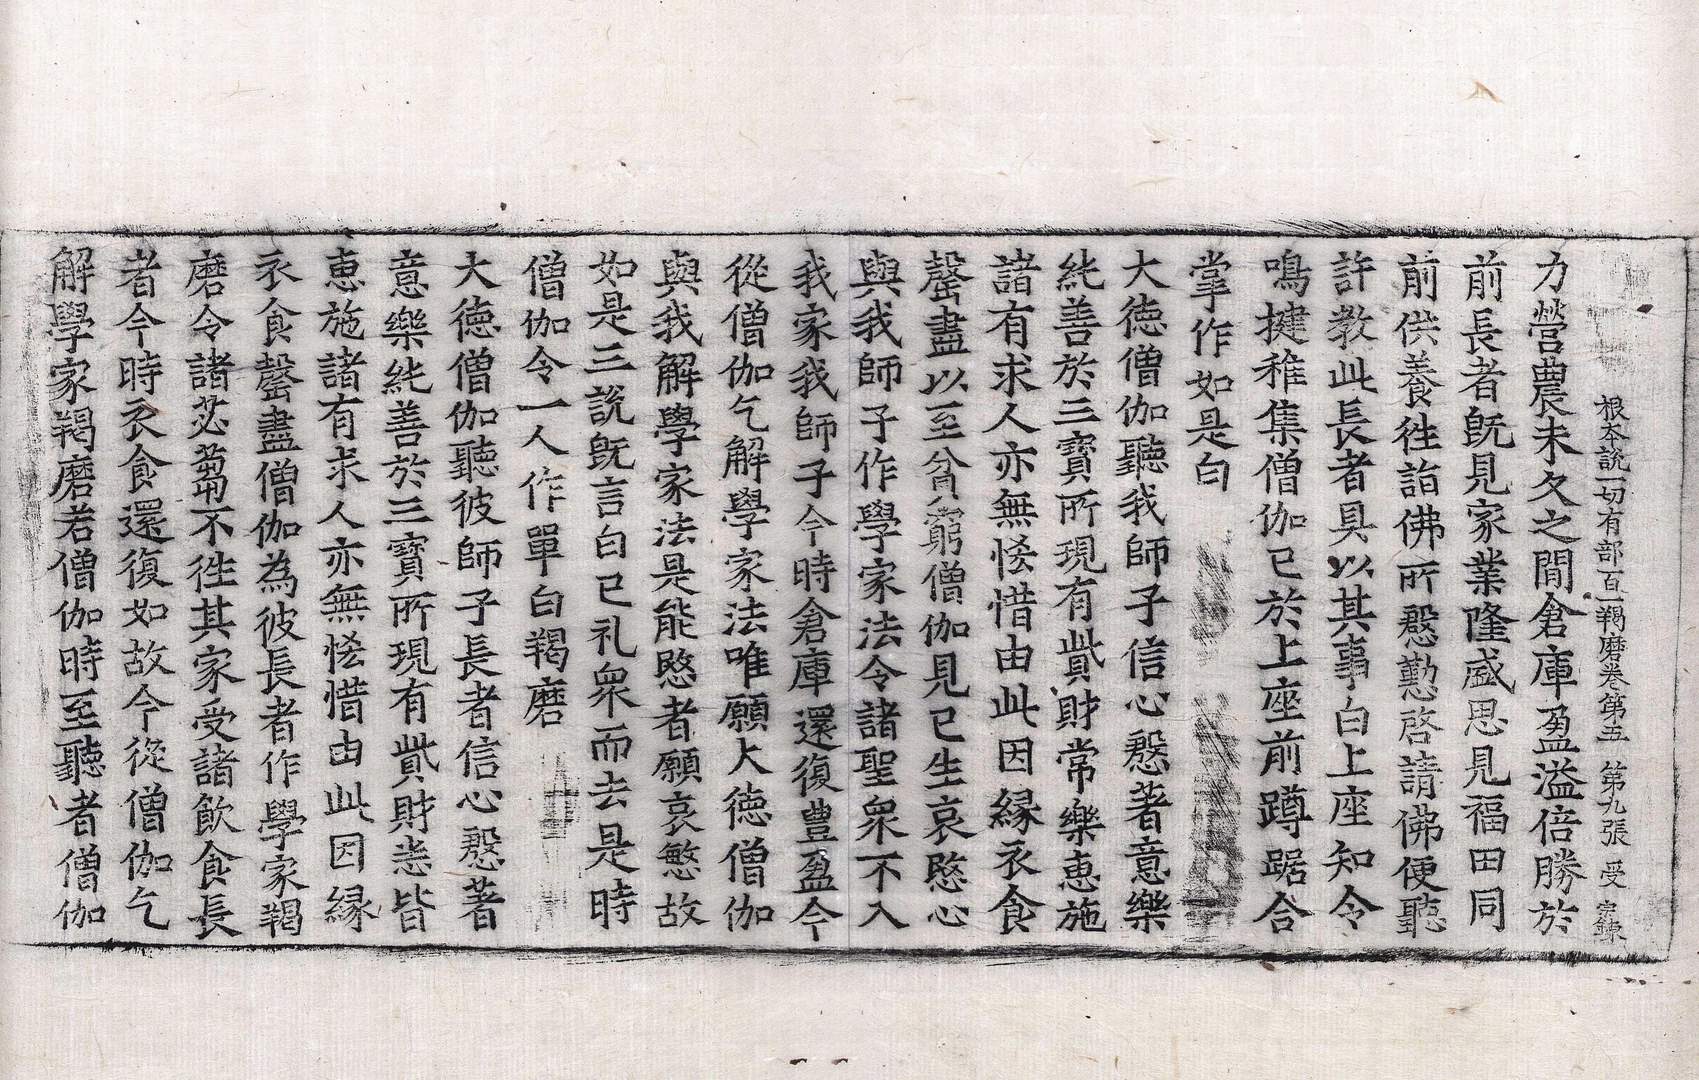 根本說一切有部百一羯磨卷第五 第九張 受
力營農未久之間倉庫盈溢倍勝於
前長者旣見家業隆盛思見福田同
前供養徃詣佛所慇懃啓請佛便聽
許教此長者具以其事白上座知令
鳴揵稚集僧伽已於上座前蹲踞合
掌作如是白
大徳僧伽聽我師子信心慇著意樂
純善於三寶所現有貲財常樂恵施
諸有求人亦無悋惜由此因縁衣食
罄盡以至貧窮僧伽見已生哀愍心
與我師子作學家法令諸聖衆不入
我家我師子今時倉庫還復豊盈今
從僧伽乞解學家法唯願大徳僧伽
與我解學家法是能愍者願哀愍故
如是三說旣言白已礼衆而去是時
僧伽令一人作單白羯磨
大徳僧伽聽彼師子長者信心慇著
意樂純善於三寶所現有貲財悉皆
恵施諸有求人亦無悋惜由此因縁
衣食罄盡僧伽為彼長者作學家羯
磨令諸苾芻不徃其家受諸飲食長
者今時衣食還復如故今從僧伽乞
解學家羯磨若僧伽時至聽者僧伽